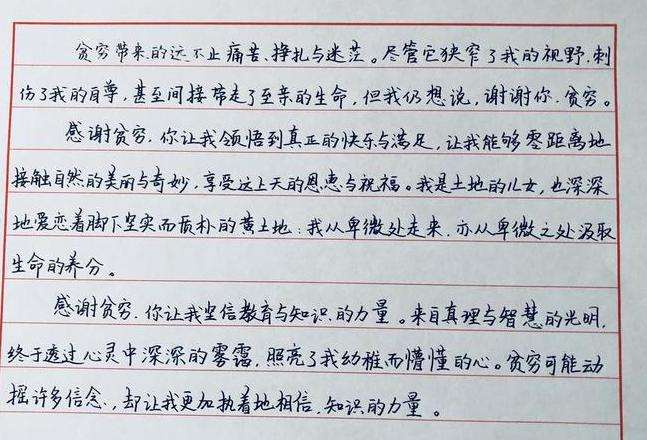 贫穷带来的远不止痛苦、挣扎与迷茫。尽管它狭窄了我的视野，刺
伤了我的自尊，甚至间接带走了至亲的生命，但我仍想说，谢谢你，贫穷。
感谢贫穷，你让我领悟到真正的快乐与满足，让我能够零距离地
接触自然的美丽与奇妙，享受这上天的恩惠与祝福。我是土地的儿女，也深深
地爱恋着脚下坚实而质朴的黄土地；我从卑微处走来，亦从卑微之处汲取
生命的养分。
感谢贫穷，你让我坚信教育与知识的力量。来自真理与智慧的光明，
终于透过心灵中深深的雾霭，照亮了我幼稚而懵懂的心。贫穷可能动
摇许多信念，却让我更加执着地相信，知识的力量。